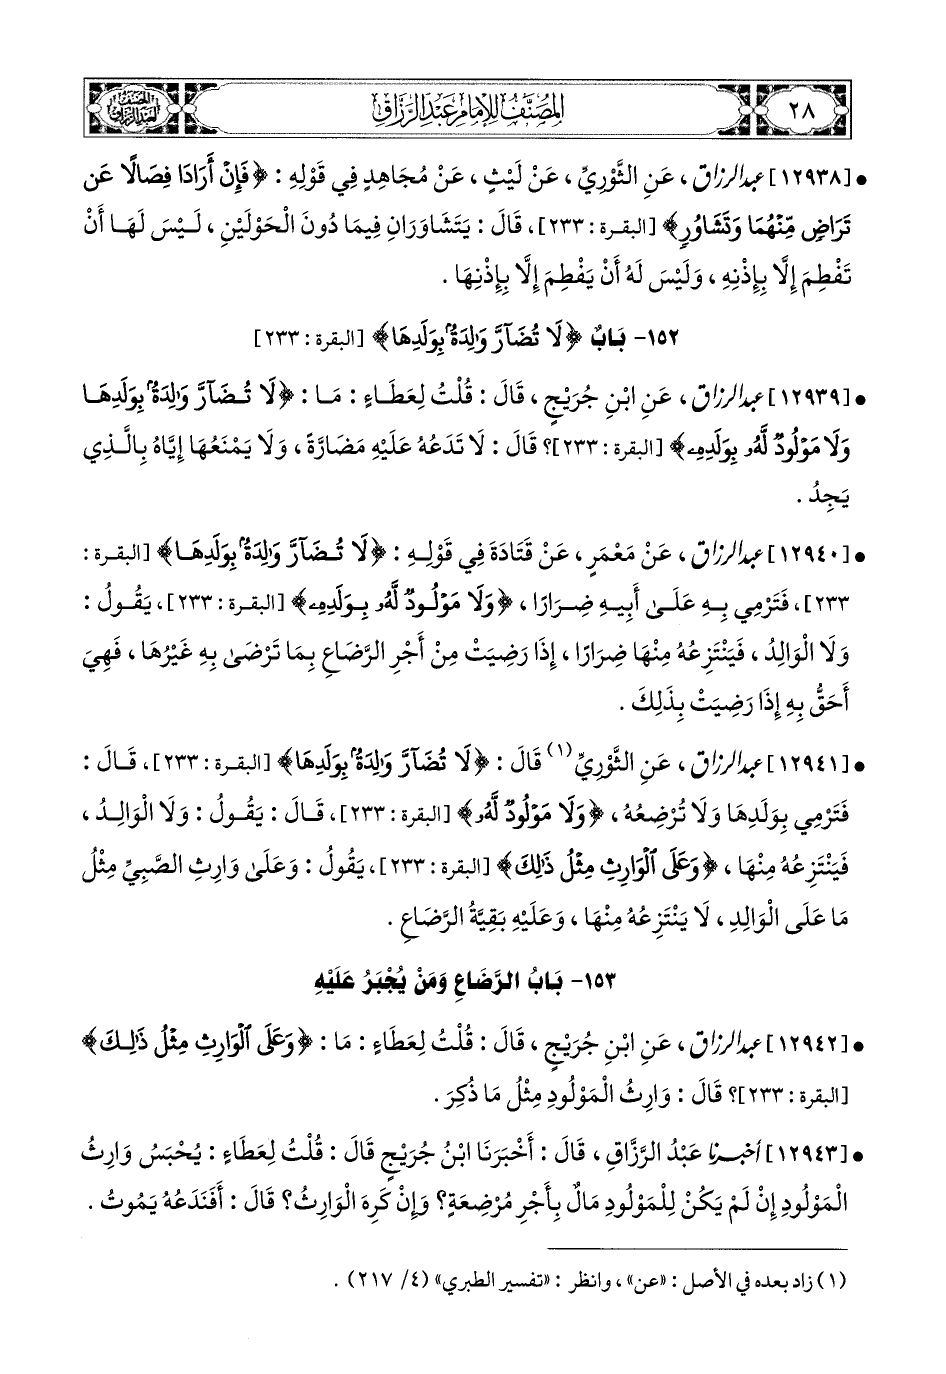 المصنف للإمام عبد الرزاق
٢٨
• [١٢٩٣٨] عبد الرزاق، عَنِ الثَّوْرِيِّ، عَنْ لَيْثٍ، عَنْ مُجَاهِدٍ فِي قَوْلِهِ: ﴿فَإِنْ أَرَادَا فِصَالًا عَن
تَرَاضٍ مِّنْهُمَا وَتَشَاوُرٍ﴾ [البقرة: ٢٣٣]، قَالَ: يَتَشَاوَرَانِ فِيمَا دُونَ الْحَوْلَيْنِ، لَيْسَ لَهَا أَنْ
تَفْطِمَ إِلَّا بِإِذْنِهِ، وَلَيْسَ لَهُ أَنْ يَفْطِمَ إِلَّا بِإِذْنِهَا.
١٥٢- بَابٌ ﴿لَا تُضَآرَّ وَٰلِدَةٌۢ بِوَلَدِهَا﴾ [البقرة: ٢٣٣]
• [١٢٩٣٩] عبد الرزاق، عَنِ ابْنِ جُرَيْجٍ، قَالَ: قُلْتُ لِعَطَاءٍ: مَا: ﴿لَا تُضَآرَّ وَٰلِدَةٌۢ بِوَلَدِهَا
وَلَا مَوْلُودٌ لَّهُۥ بِوَلَدِهِۦ﴾ [البقرة: ٢٣٣]؟ قَالَ: لَا تَدَعُهُ عَلَيْهِ مَضَارَّةً، وَلَا يَمْنَعُهَا إِيَّاهُ بِالَّذِي
يَجِدُ.
• [١٢٩٤٠] عبد الرزاق، عَنْ مَعْمَرٍ، عَنْ قَتَادَةَ فِي قَوْلِهِ: ﴿لَا تُضَآرَّ وَٰلِدَةٌۢ بِوَلَدِهَا﴾ [البقرة:
٢٣٣]، فَتَرْمِي بِهِ عَلَىٰ أَبِيهِ ضِرَارًا، ﴿وَلَا مَوْلُودٌ لَّهُۥ بِوَلَدِهِۦ﴾ [البقرة: ٢٣٣]، يَقُولُ:
وَلَا الْوَالِدُ، فَيَنْتَزِعُهُ مِنْهَا ضِرَارًا، إِذَا رَضِيَتْ مِنْ أَجْرِ الرَّضَاعِ بِمَا تَرْضَىٰ بِهِ غَيْرُهَا، فَهِيَ
أَحَقُّ بِهِ إِذَا رَضِيَتْ بِذَلِكَ.
• [١٢٩٤١] عبد الرزاق، عَنِ الثَّوْرِيِّ(١) قَالَ: ﴿لَا تُضَآرَّ وَٰلِدَةٌۢ بِوَلَدِهَا﴾ [البقرة: ٢٣٣]، قَالَ:
فَتَرْمِي بِوَلَدِهَا وَلَا تُرْضِعُهُ، ﴿وَلَا مَوْلُودٌ لَّهُۥ﴾ [البقرة: ٢٣٣]، قَالَ: يَقُولُ: وَلَا الْوَالِدُ،
فَيَنْتَزِعُهُ مِنْهَا، ﴿وَعَلَى ٱلْوَارِثِ مِثْلُ ذَٰلِكَ﴾ [البقرة: ٢٣٣]، يَقُولُ: وَعَلَىٰ وَارِثِ الصَّبِيِّ مِثْلُ
مَا عَلَى الْوَالِدِ، لَا يَنْتَزِعُهُ مِنْهَا، وَعَلَيْهِ بَقِيَّةُ الرَّضَاعِ.
١٥٣- بَابُ الرَّضَاعِ وَمَنْ يُجْبَرُ عَلَيْهِ
• [١٢٩٤٢] عبد الرزاق، عَنِ ابْنِ جُرَيْجٍ، قَالَ: قُلْتُ لِعَطَاءٍ: مَا: ﴿وَعَلَى ٱلْوَارِثِ مِثْلُ ذَٰلِكَ﴾
[البقرة: ٢٣٣]؟ قَالَ: وَارِثُ الْمَوْلُودِ مِثْلُ مَا ذُكِرَ.
• [١٢٩٤٣] أخبرنا عَبْدُ الرَّزَّاقِ، قَالَ: أَخْبَرَنَا ابْنُ جُرَيْجٍ قَالَ: قُلْتُ لِعَطَاءٍ: يُحْبَسُ وَارِثُ
الْمَوْلُودِ إِنْ لَمْ يَكُنْ لِلْمَوْلُودِ مَالٌ بِأَجْرِ مُرْضِعَةٍ؟ وَإِنْ كَرِهَ الْوَارِثُ؟ قَالَ: أَفَنَدَعُهُ يَمُوتُ.
(١) زاد بعده في الأصل: «عن»، وانظر: «تفسير الطبري» (٤/ ٢١٧).